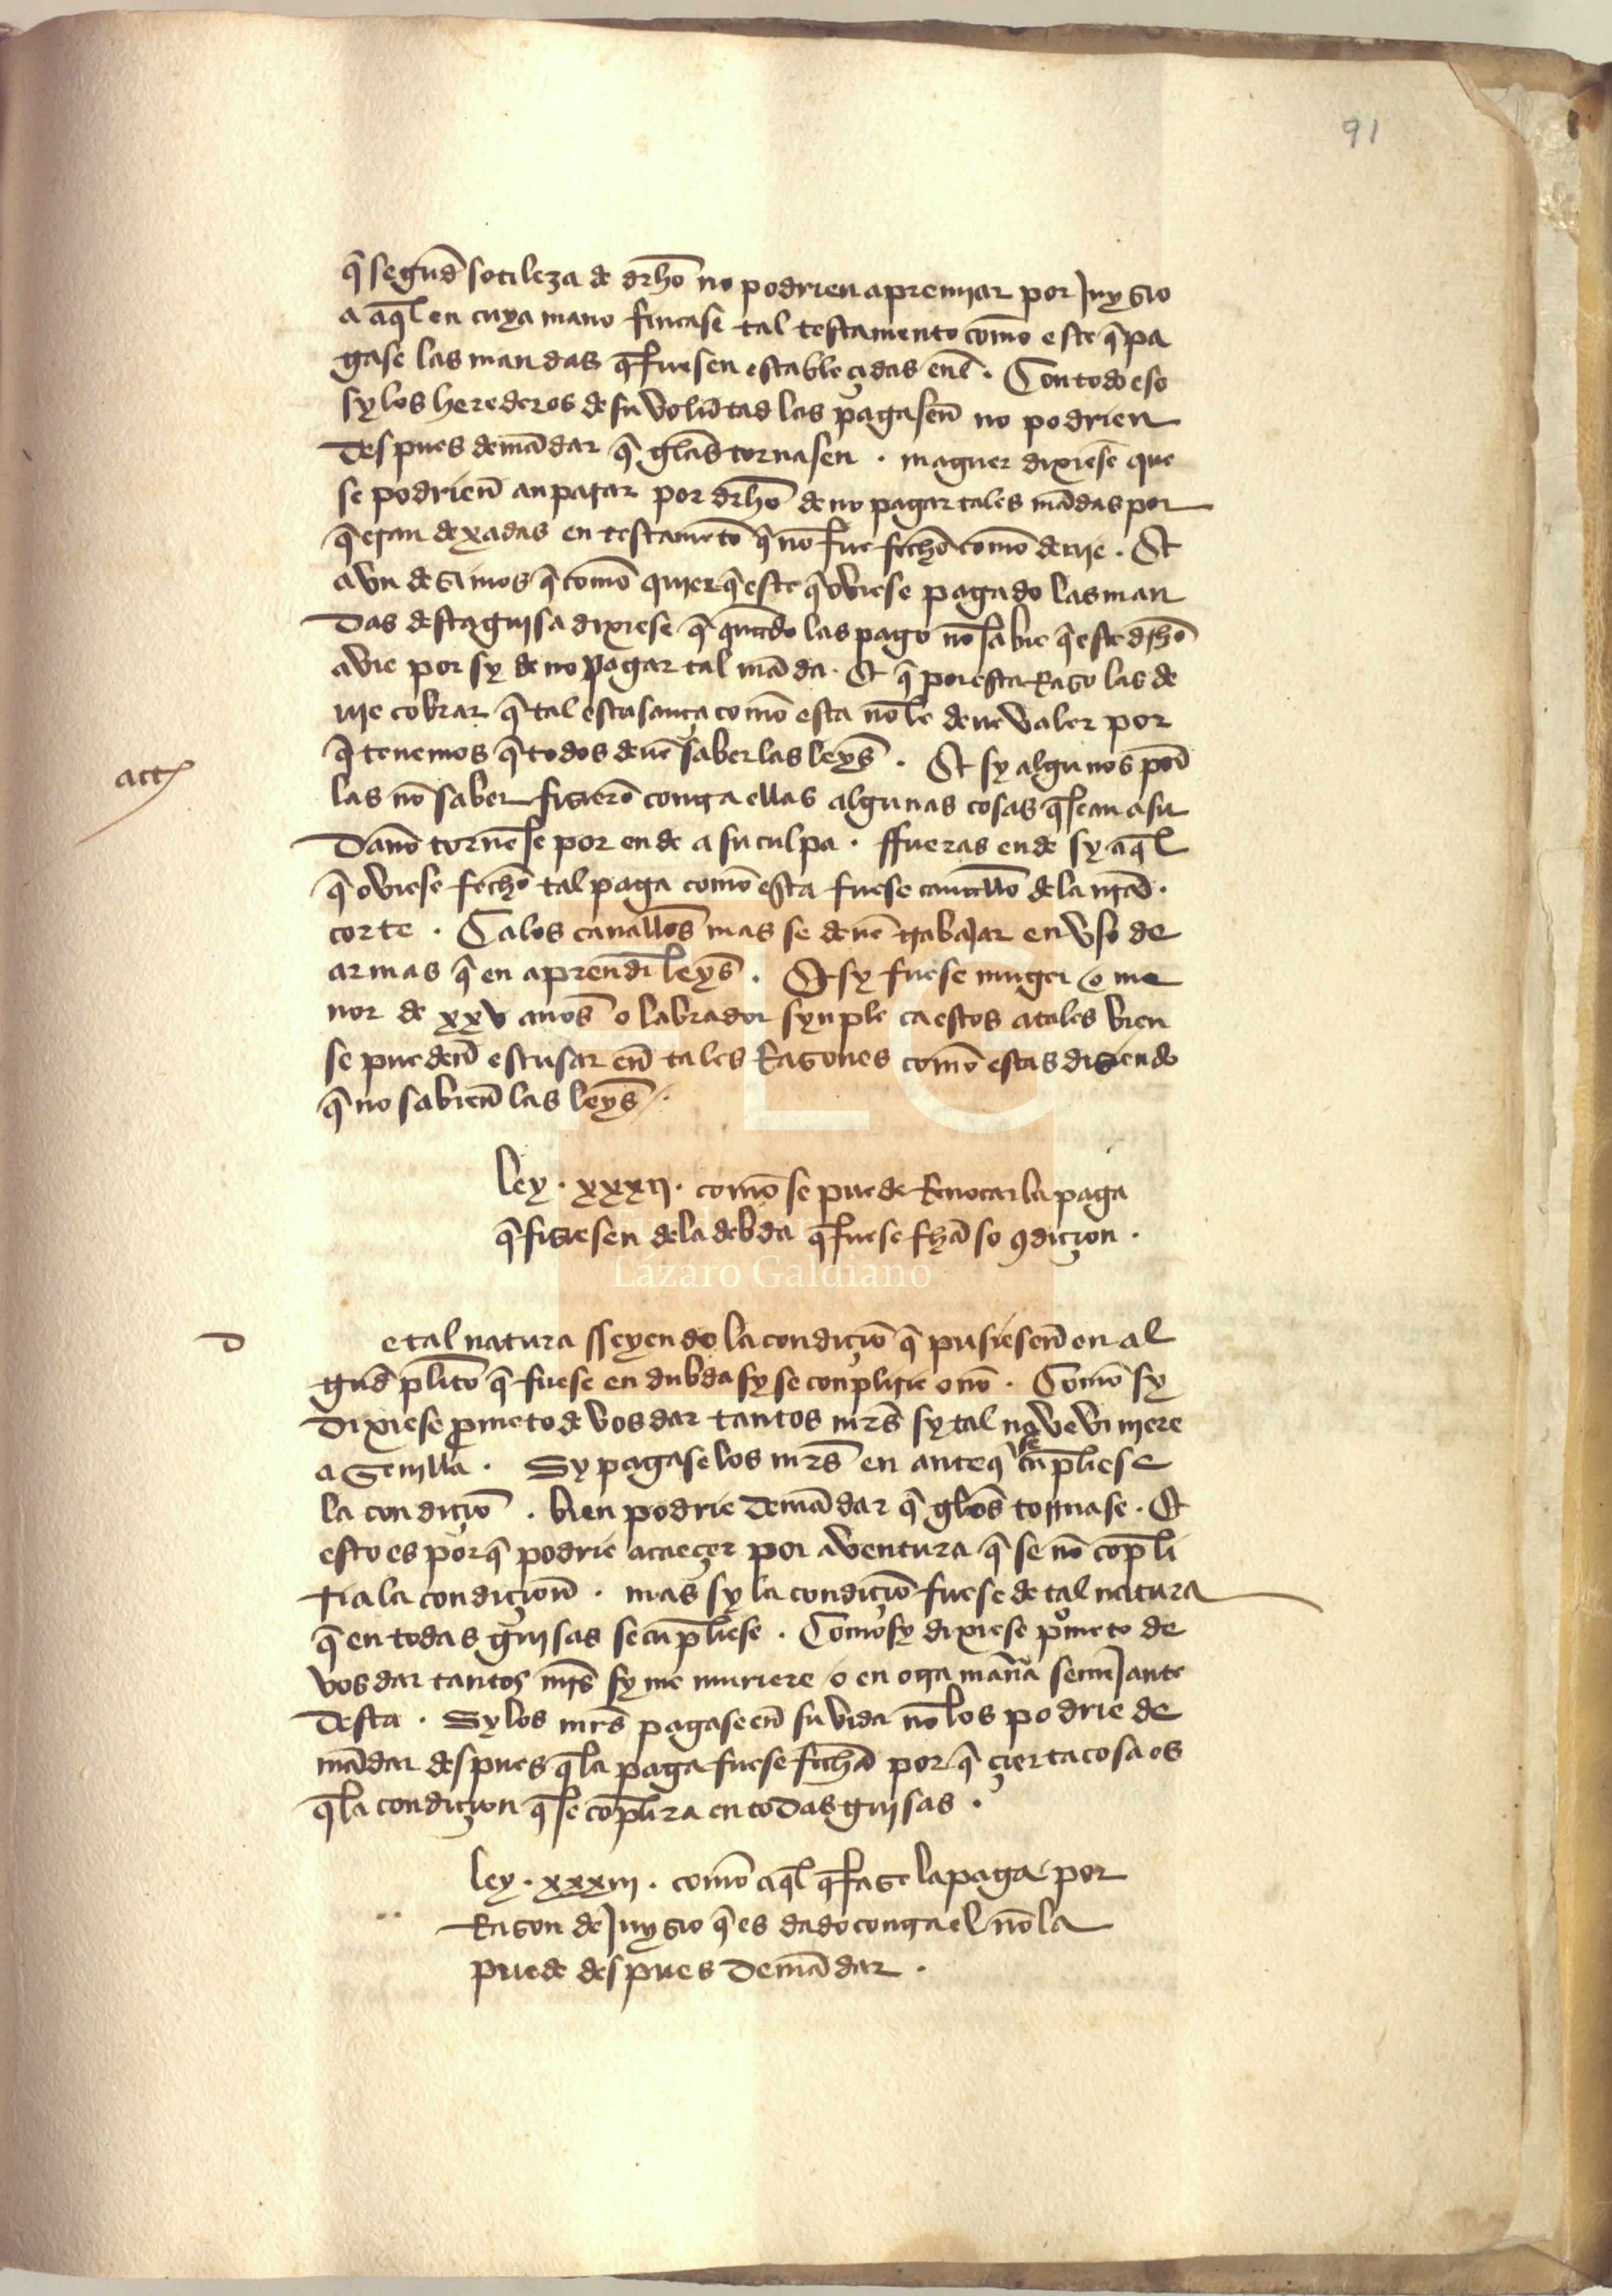 91
q̃ segũd sotileza de dr̃ho no podrien apremiar por Juyzio
a aq̃l en cuya mano fincase tal testamento como este q̃ pa
gase las mandas q̃ fuesen establesçidas enl . Con todo eso
sy los herederos de su volũtad las pagaseñ no podrien
despues demãdar q̃ gelas tornasen . maguer dixiese que
se podrieñ anparar por dr̃ho de no pagar tales mãdas por
q̃ eran dexadas en testamẽto q̃ nõ fue fechõ comõ deue . Et
avn dezimos q̃ comõ quier q̃ este q̃ oviese pagado las man
das desta guisa dixiese q̃ quãdo las pago nõ sabie q̃ este dr̃ho
avie por sy de no pagar tal mãda . Et q̃ por esta Razo las de
uie cobrar q̃ tal escusança comõ esta nõ le deue valer por
q̃ tenemos q̃ todos deuẽ saber las leys̃ . Et sy algunos por
act
las nõ saber fizierõ contra ellas algunas cosas q̃ sean a su
dañõ tornẽse por ende a su culpa . ffueras ende sy aq̃l
q̃ oviese fechõ tal paga comõ esta fuese cauallõ de la ntrã
corte . Ca los cauallõs mas se deuẽ trabajar en vso de
armas q̃ en aprendr̃ leys̃ . Et sy fuese muger o me
nor de xxv anõs o labrador synple ca estos atales bien
se puedeñ escusar eñ tales Razones comõ estas diziendo
q̃ no sabieñ las leys̃ .
ley . xxxij . comõ se puede Reuocar la paga
q̃ fiziesen dela debda q̃ fuese fhã so 9diçion .
d
e tal natura sseyendo la condiçiõ q̃ pusieseñ en al
gũd pl̃ito q̃ fuese en dubda sy se conplirie o nõ . Comõ sy
dixiese prometo de vos dar tantos mr̃s sy tal naue viniere
a Seuilla . Sy pagase los mr̃s en ante q̃ se cũpliese
la condiçiõ . bien podrie demãdar q̃ gelõs tornase . Et
esto es por q̃ podrie acaeçer por aventura q̃ se nõ cõpli
ria la condiçioñ . mas sy la condiçiõ fuese de tal natura
q̃ en todas guisas se cũpliese . Como sy dixiese pºmeto de
vos dar tantos mr̃s sy me muriere o en otra manã semejante
desta . Sy los mr̃s pagase eñ su vida nõ los podrie de
mãdar despues q̃ la paga fuese fechã por q̃ çierta cosa es
q̃ la condiçion q̃ se cõplira en todas guisas .
ley . xxxiij . comõ aq̃l q̃ faze la paga por
Razon de Juyzio q̃ es dado contra el nõ la
puede despues demãdar .
Lázaro Galdiano